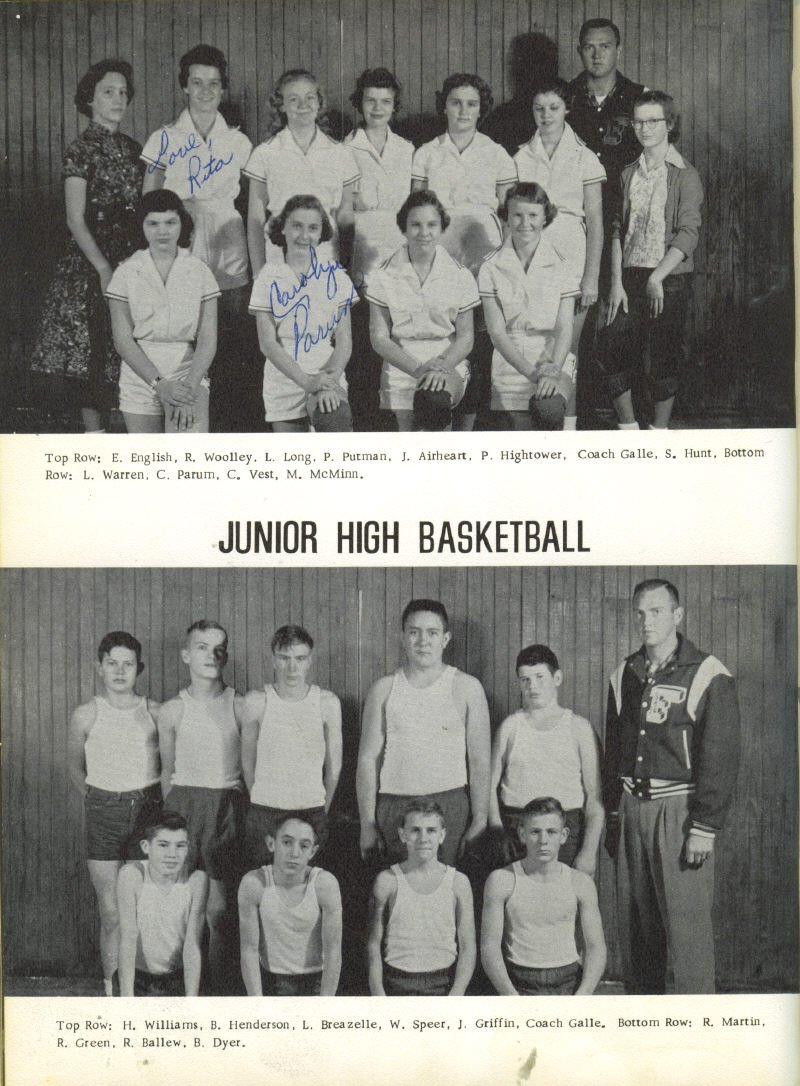 Love,
Rita
Carolyn
Parum
Top Row: E. English, R. Woolley, L. Long, P. Putman, J. Airheart, P. Hightower, Coach Galle, S. Hunt, Bottom
Row: L. Warren, C. Parum, C. Vest, M. McMinn.
JUNIOR HIGH BASKETBALL
Top Row: H. Williams, B. Henderson, L. Breazelle, W. Speer, J. Griffin, Coach Galle. Bottom Row: R. Martin,
R. Green, R. Ballew, B. Dyer.